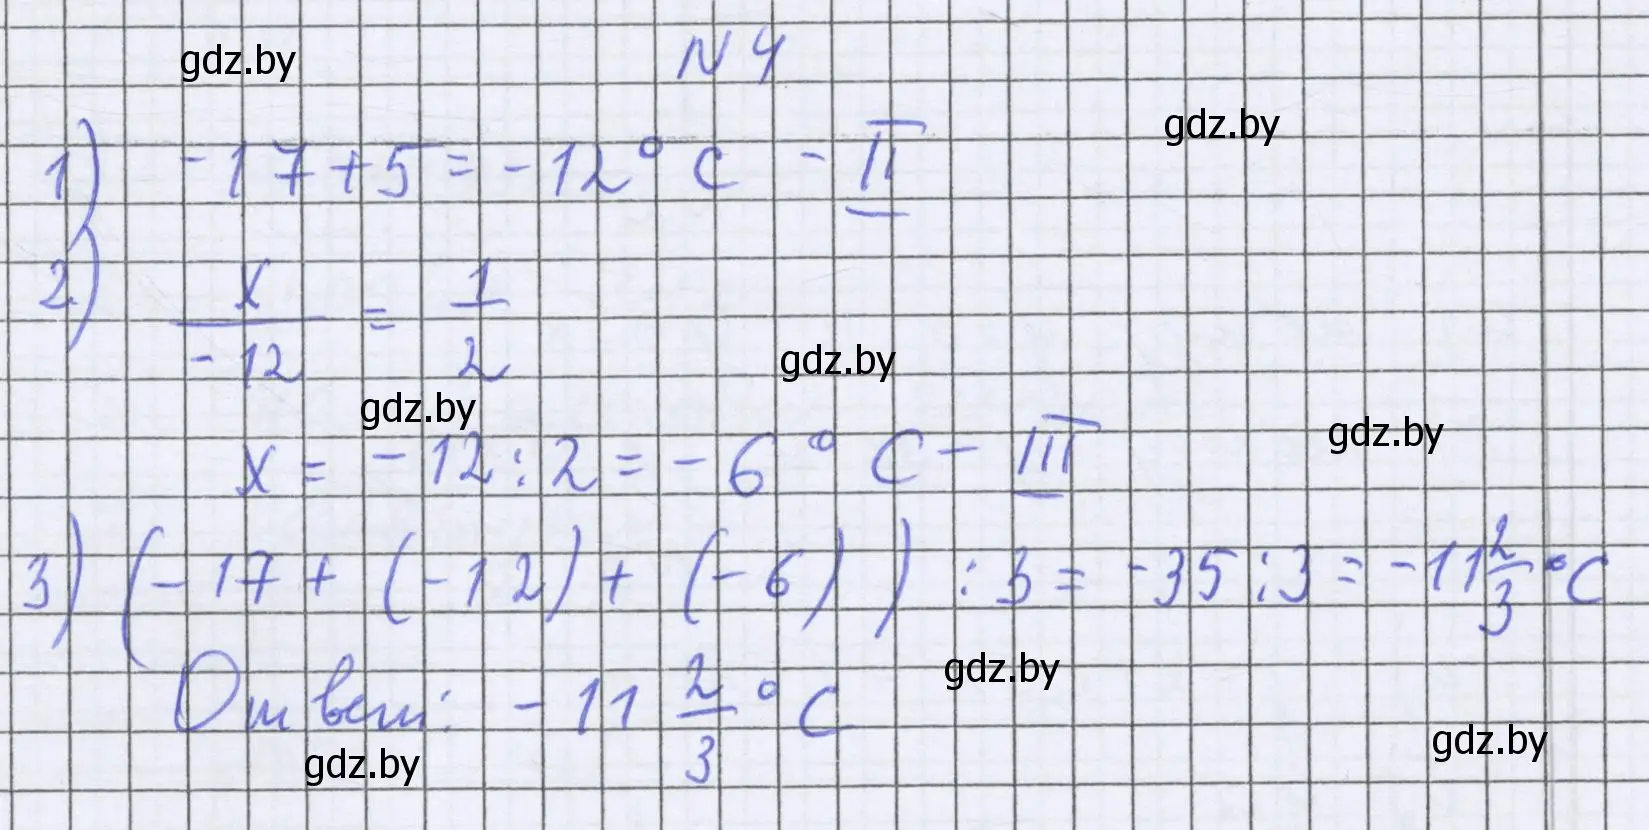 gdz.by
N 4
gdz.by
1) -17+5=-12° C - II
2) x/-12 = 1/2
gdz.by
gdz.by
gdz.by
x = -12:2 = -6° C - III
3) (-17+ (-12)+ (-6)) :3= -35:3= -11 2/3 °C
gdz.by
Ответ: -11 2/3 °C
gdz.by
gdz.by